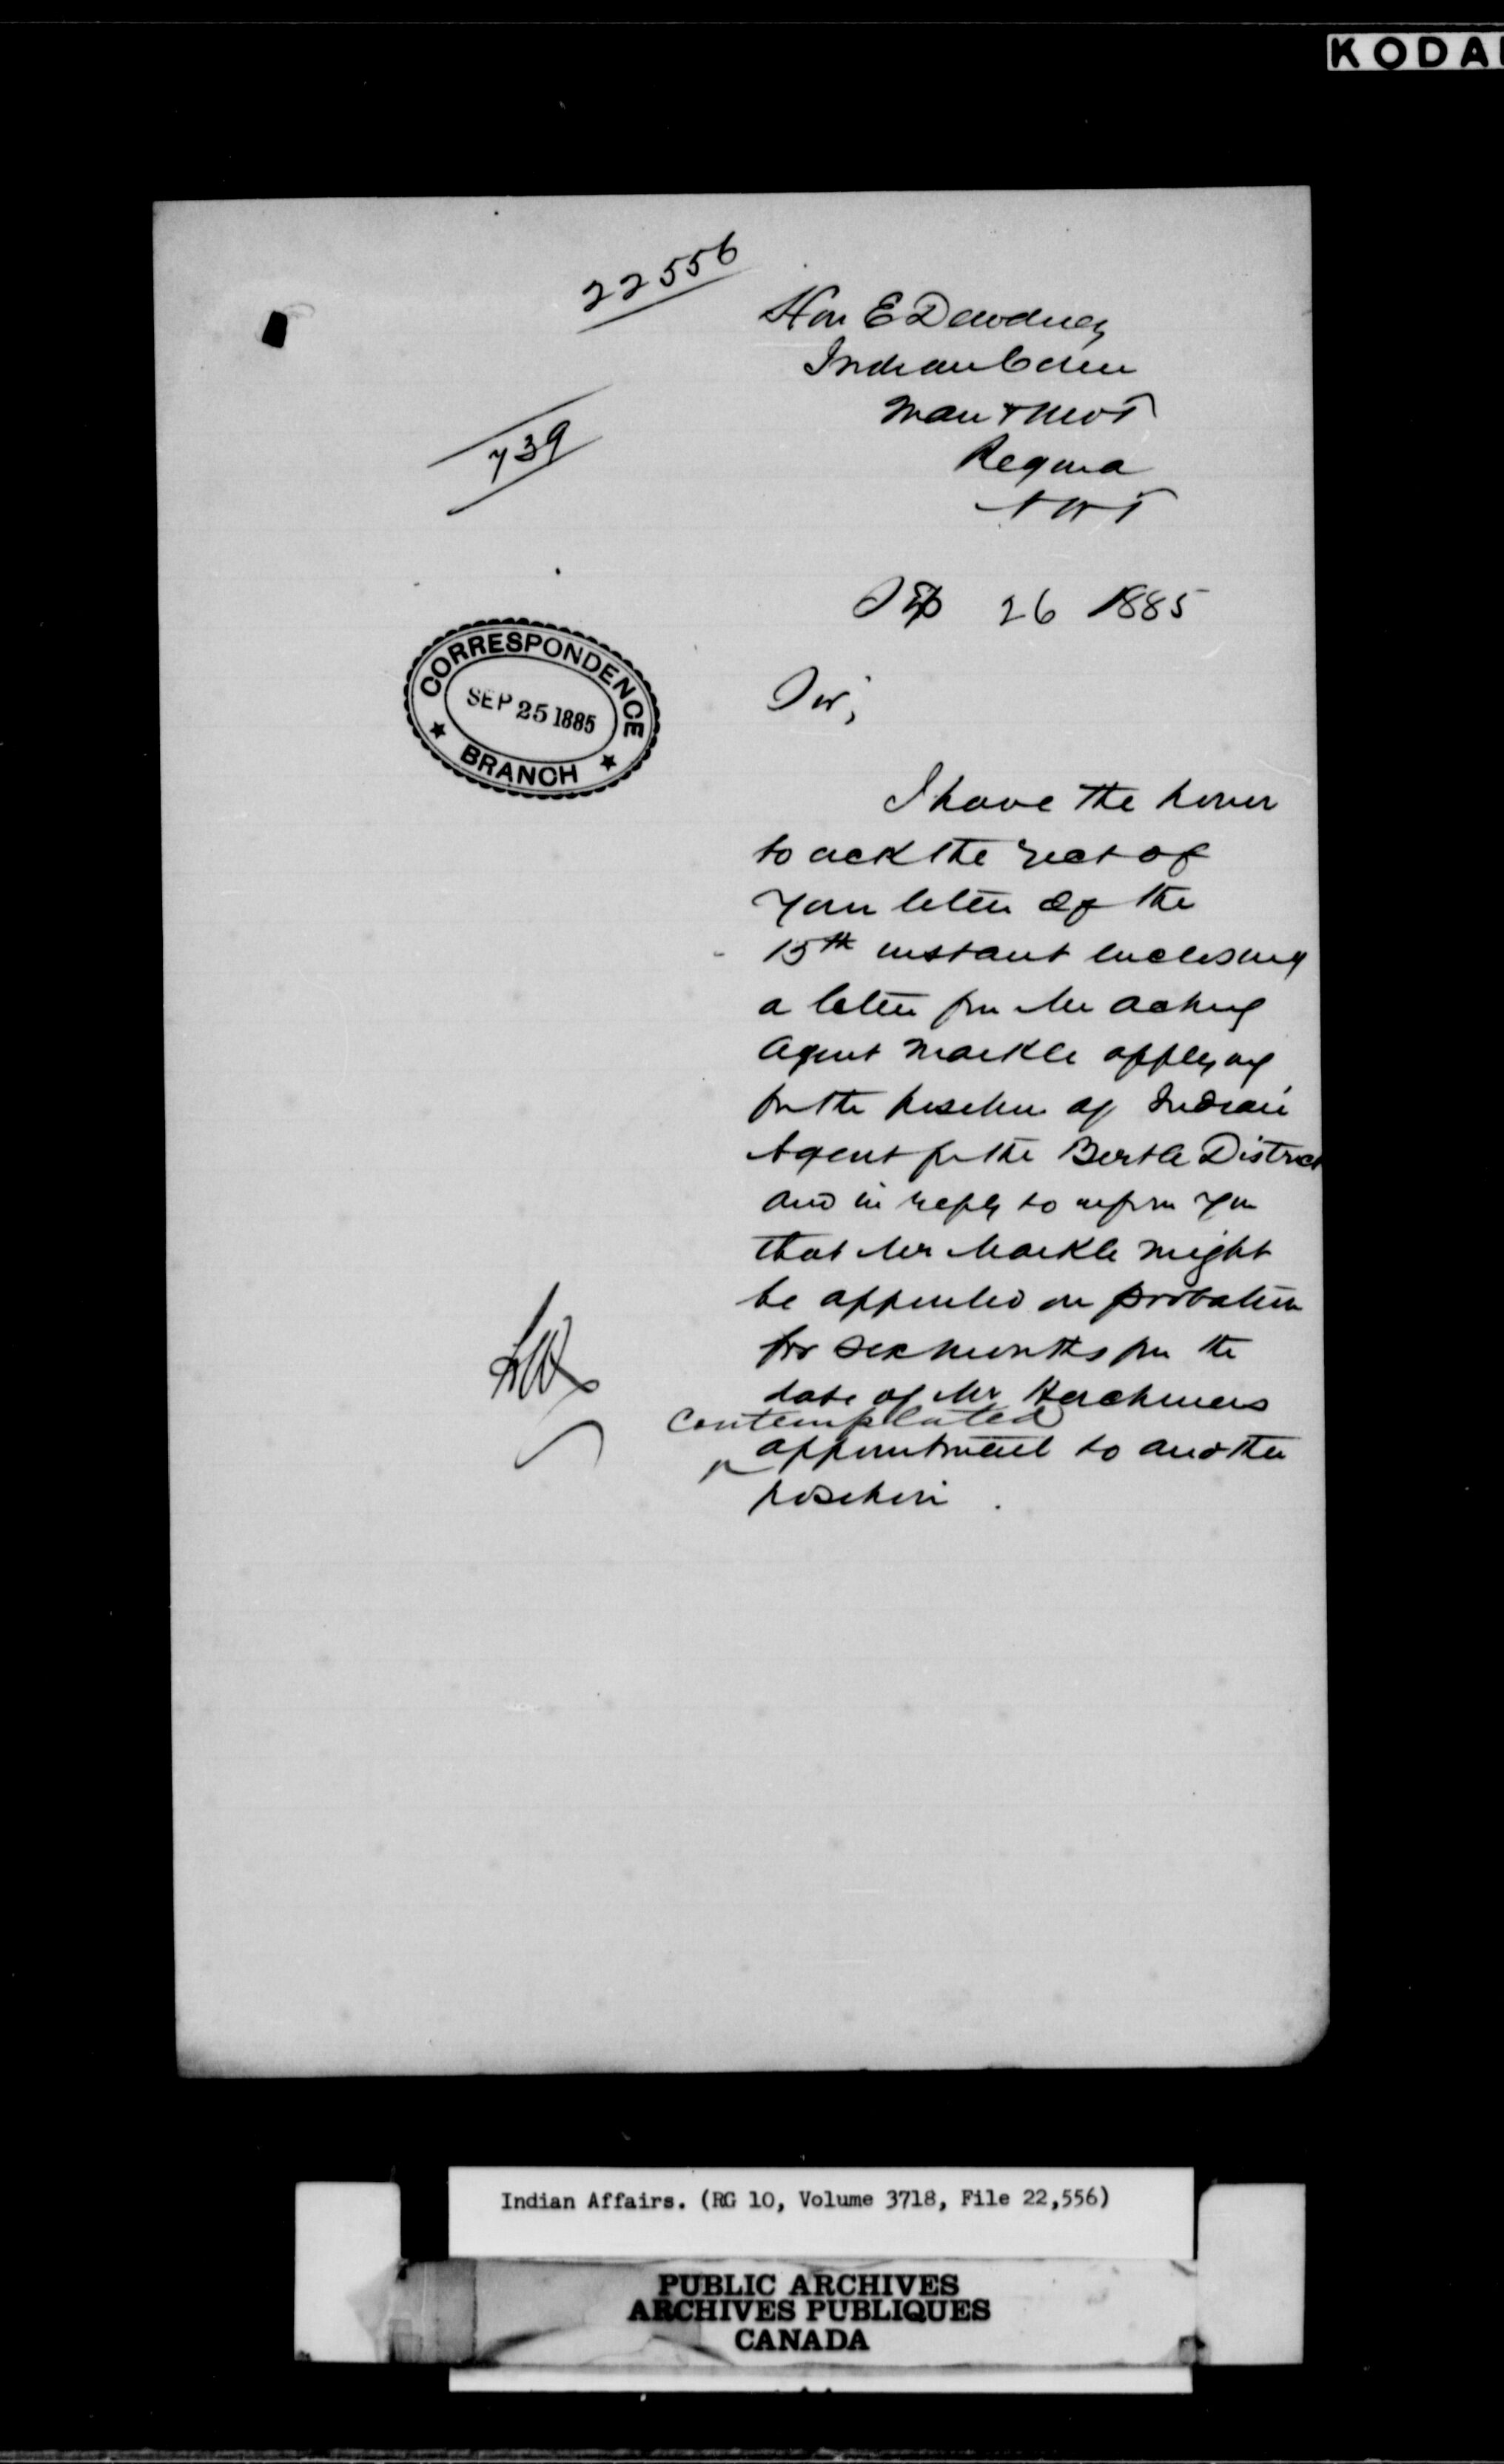 KODA
22556
Hon E Dewdney
Indian Comr
Man & NWT
Regina
NWT
739
Sep 26 1885
CORRESPONDENCE
SEP 25 1885
BRANCH
Sir,
I have the honor
to ack the rect of
your letter of the
15th instant enclosing
a letter from Mr acting
Agent Markle applying
for the position of Indian
Agent for the Bertle District
and in reply to inform you
that Mr Markle might
be appointed on probation
for six months from the
date of Mr Herchmers
contemplated
appointment to another
position.
Indian Affairs. (RG 10, Volume 3718, File 22,556)
PUBLIC ARCHIVES
ARCHIVES PUBLIQUES
CANADA